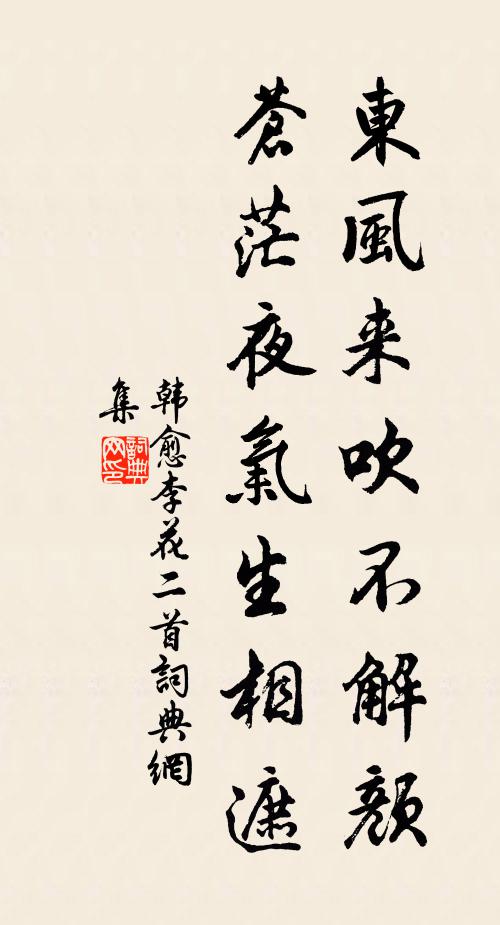 東風来吹不解顏
蒼茫夜氣生相遮
韓愈李花二首詞典網
集
詞典网印